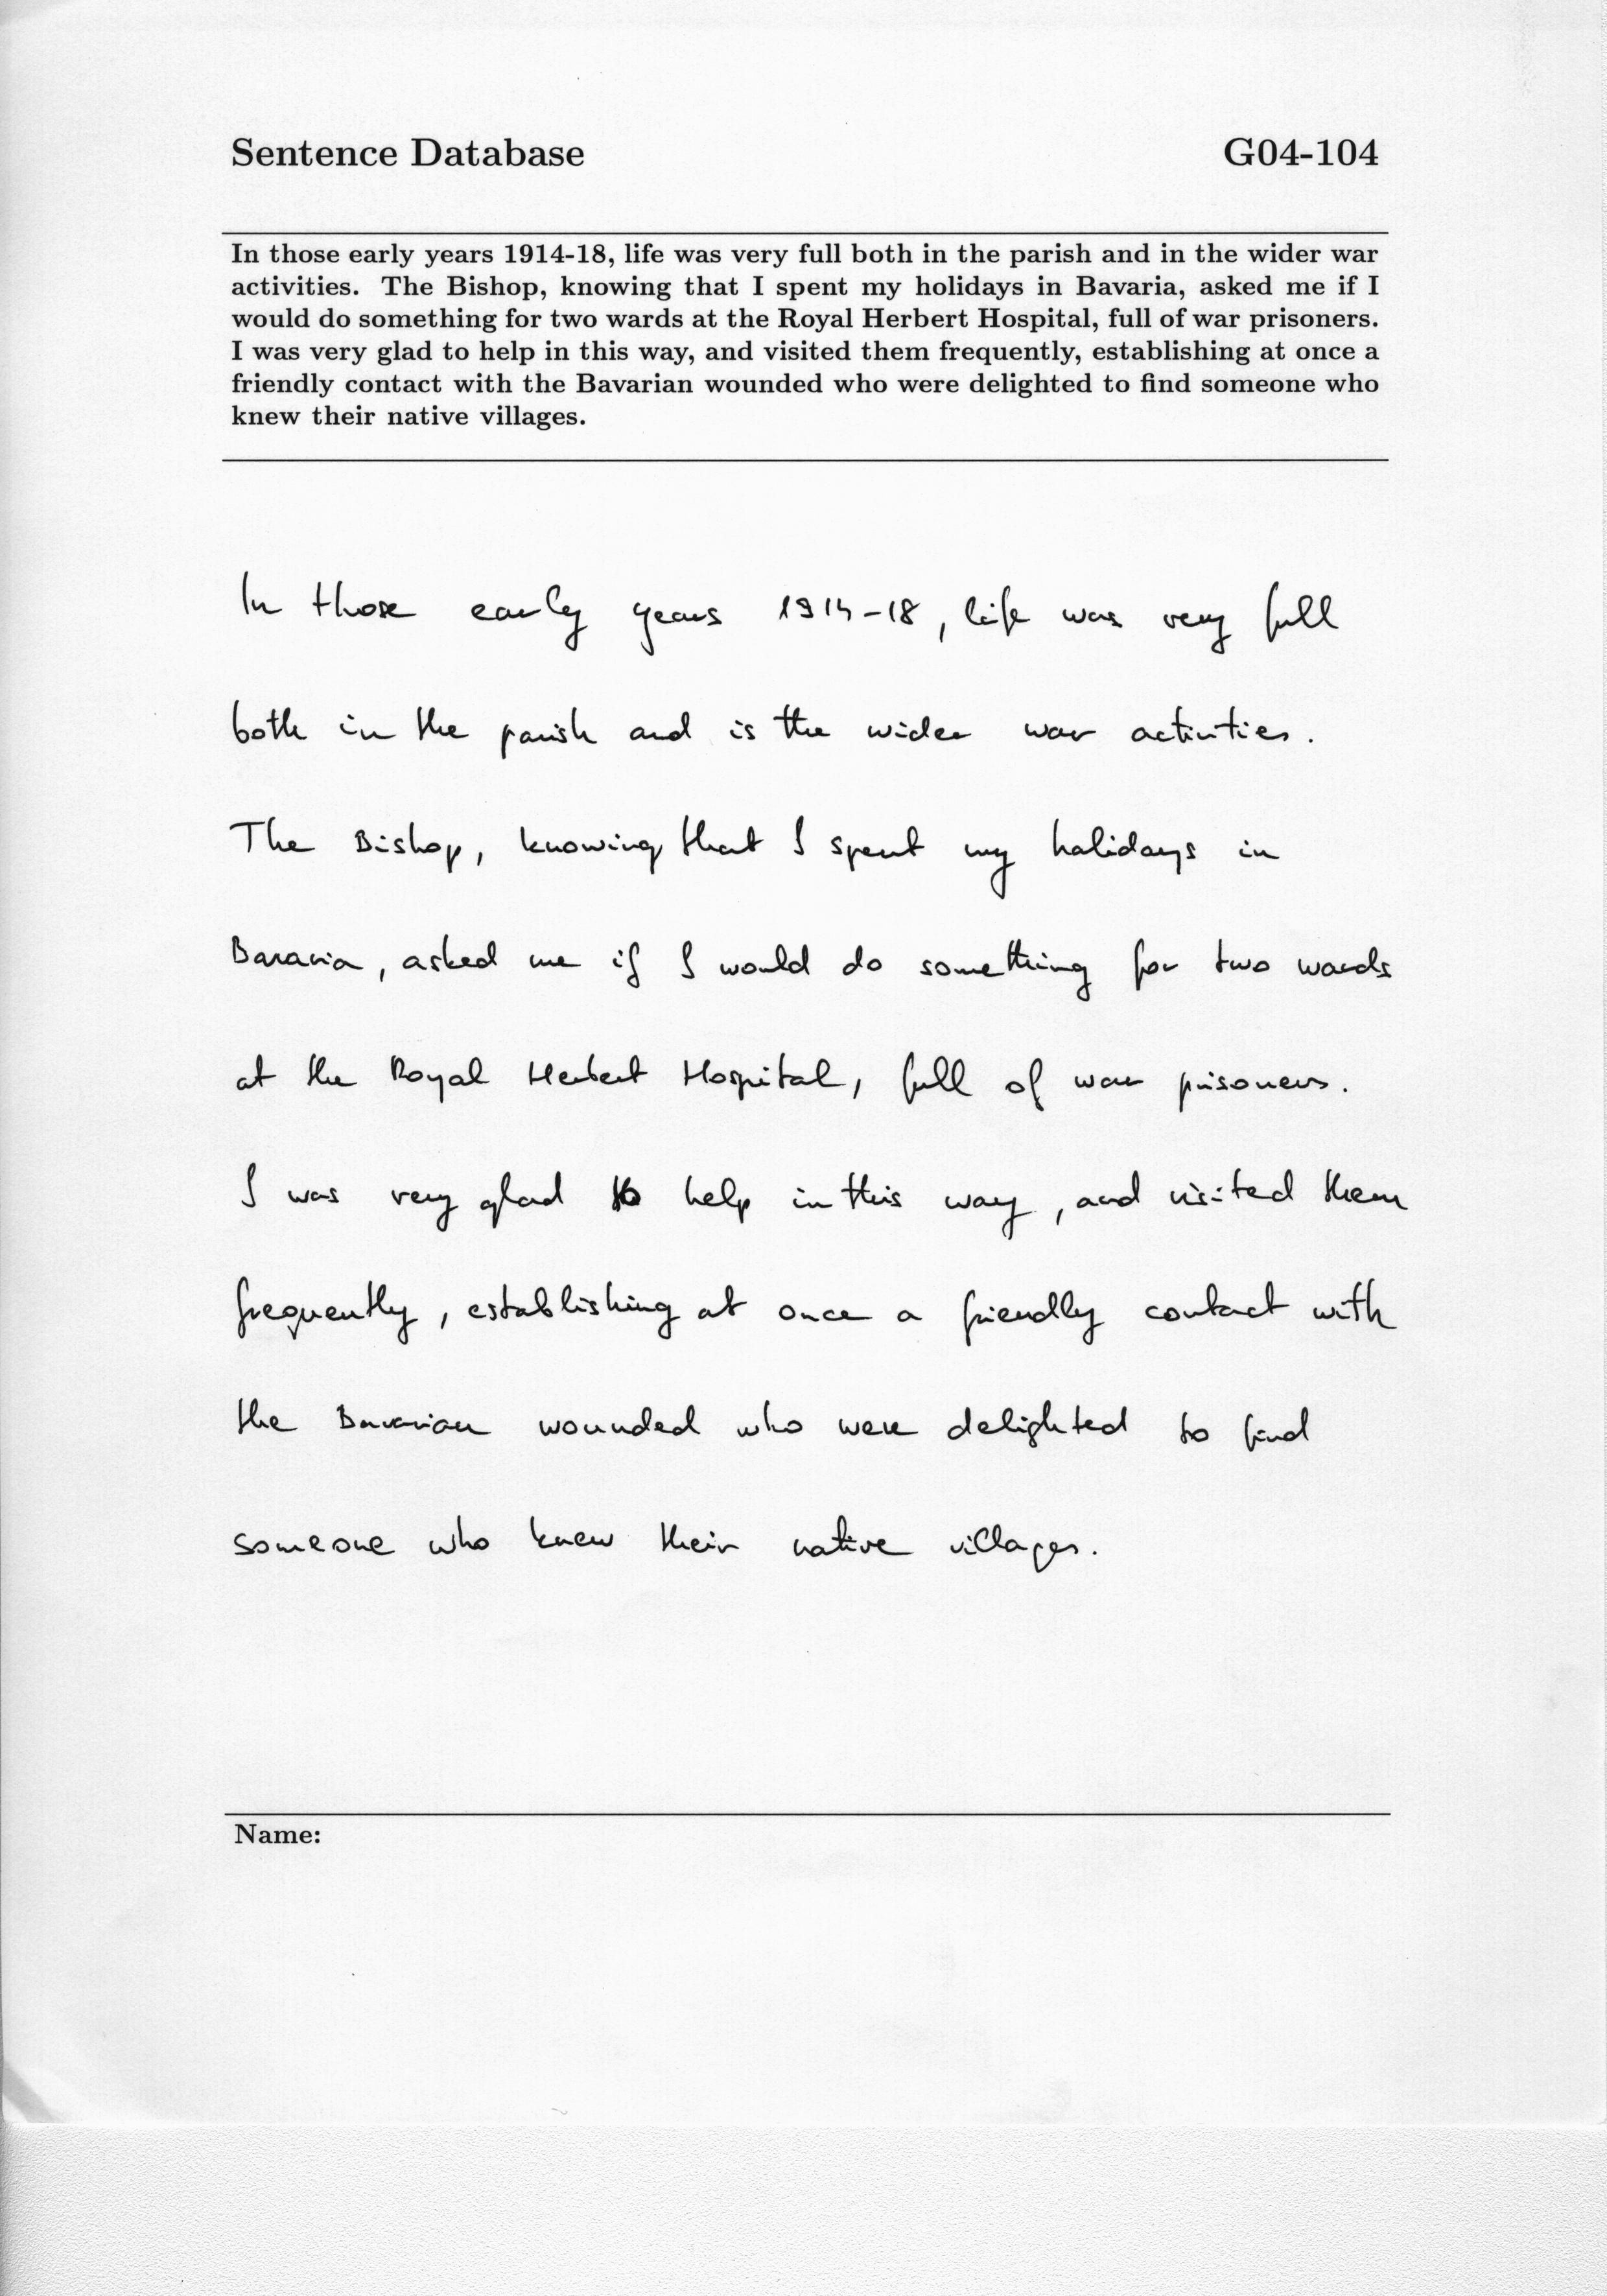 Sentence Database G04-104
In those early years 1914-18, life was very full both in the parish and in the wider war
activities. The Bishop, knowing that I spent my holidays in Bavaria, asked me if I
would do something for two wards at the Royal Herbert Hospital, full of war prisoners.
I was very glad to help in this way, and visited them frequently, establishing at once a
friendly contact with the Bavarian wounded who were delighted to find someone who
knew their native villages.
In those early years 1914-18, life was very full
both in the parish and is the wider war activities.
The Bishop, knowing that I spent my holidays in
Bavaria, asked me if I would do something for two wards
at the Royal Herbert Hospital, full of war prisoners.
I was very glad to help in this way, and visited them
frequently, establishing at once a friendly contact with
the Bavarian wounded who were delighted to find
someone who knew their native villages.
Name: